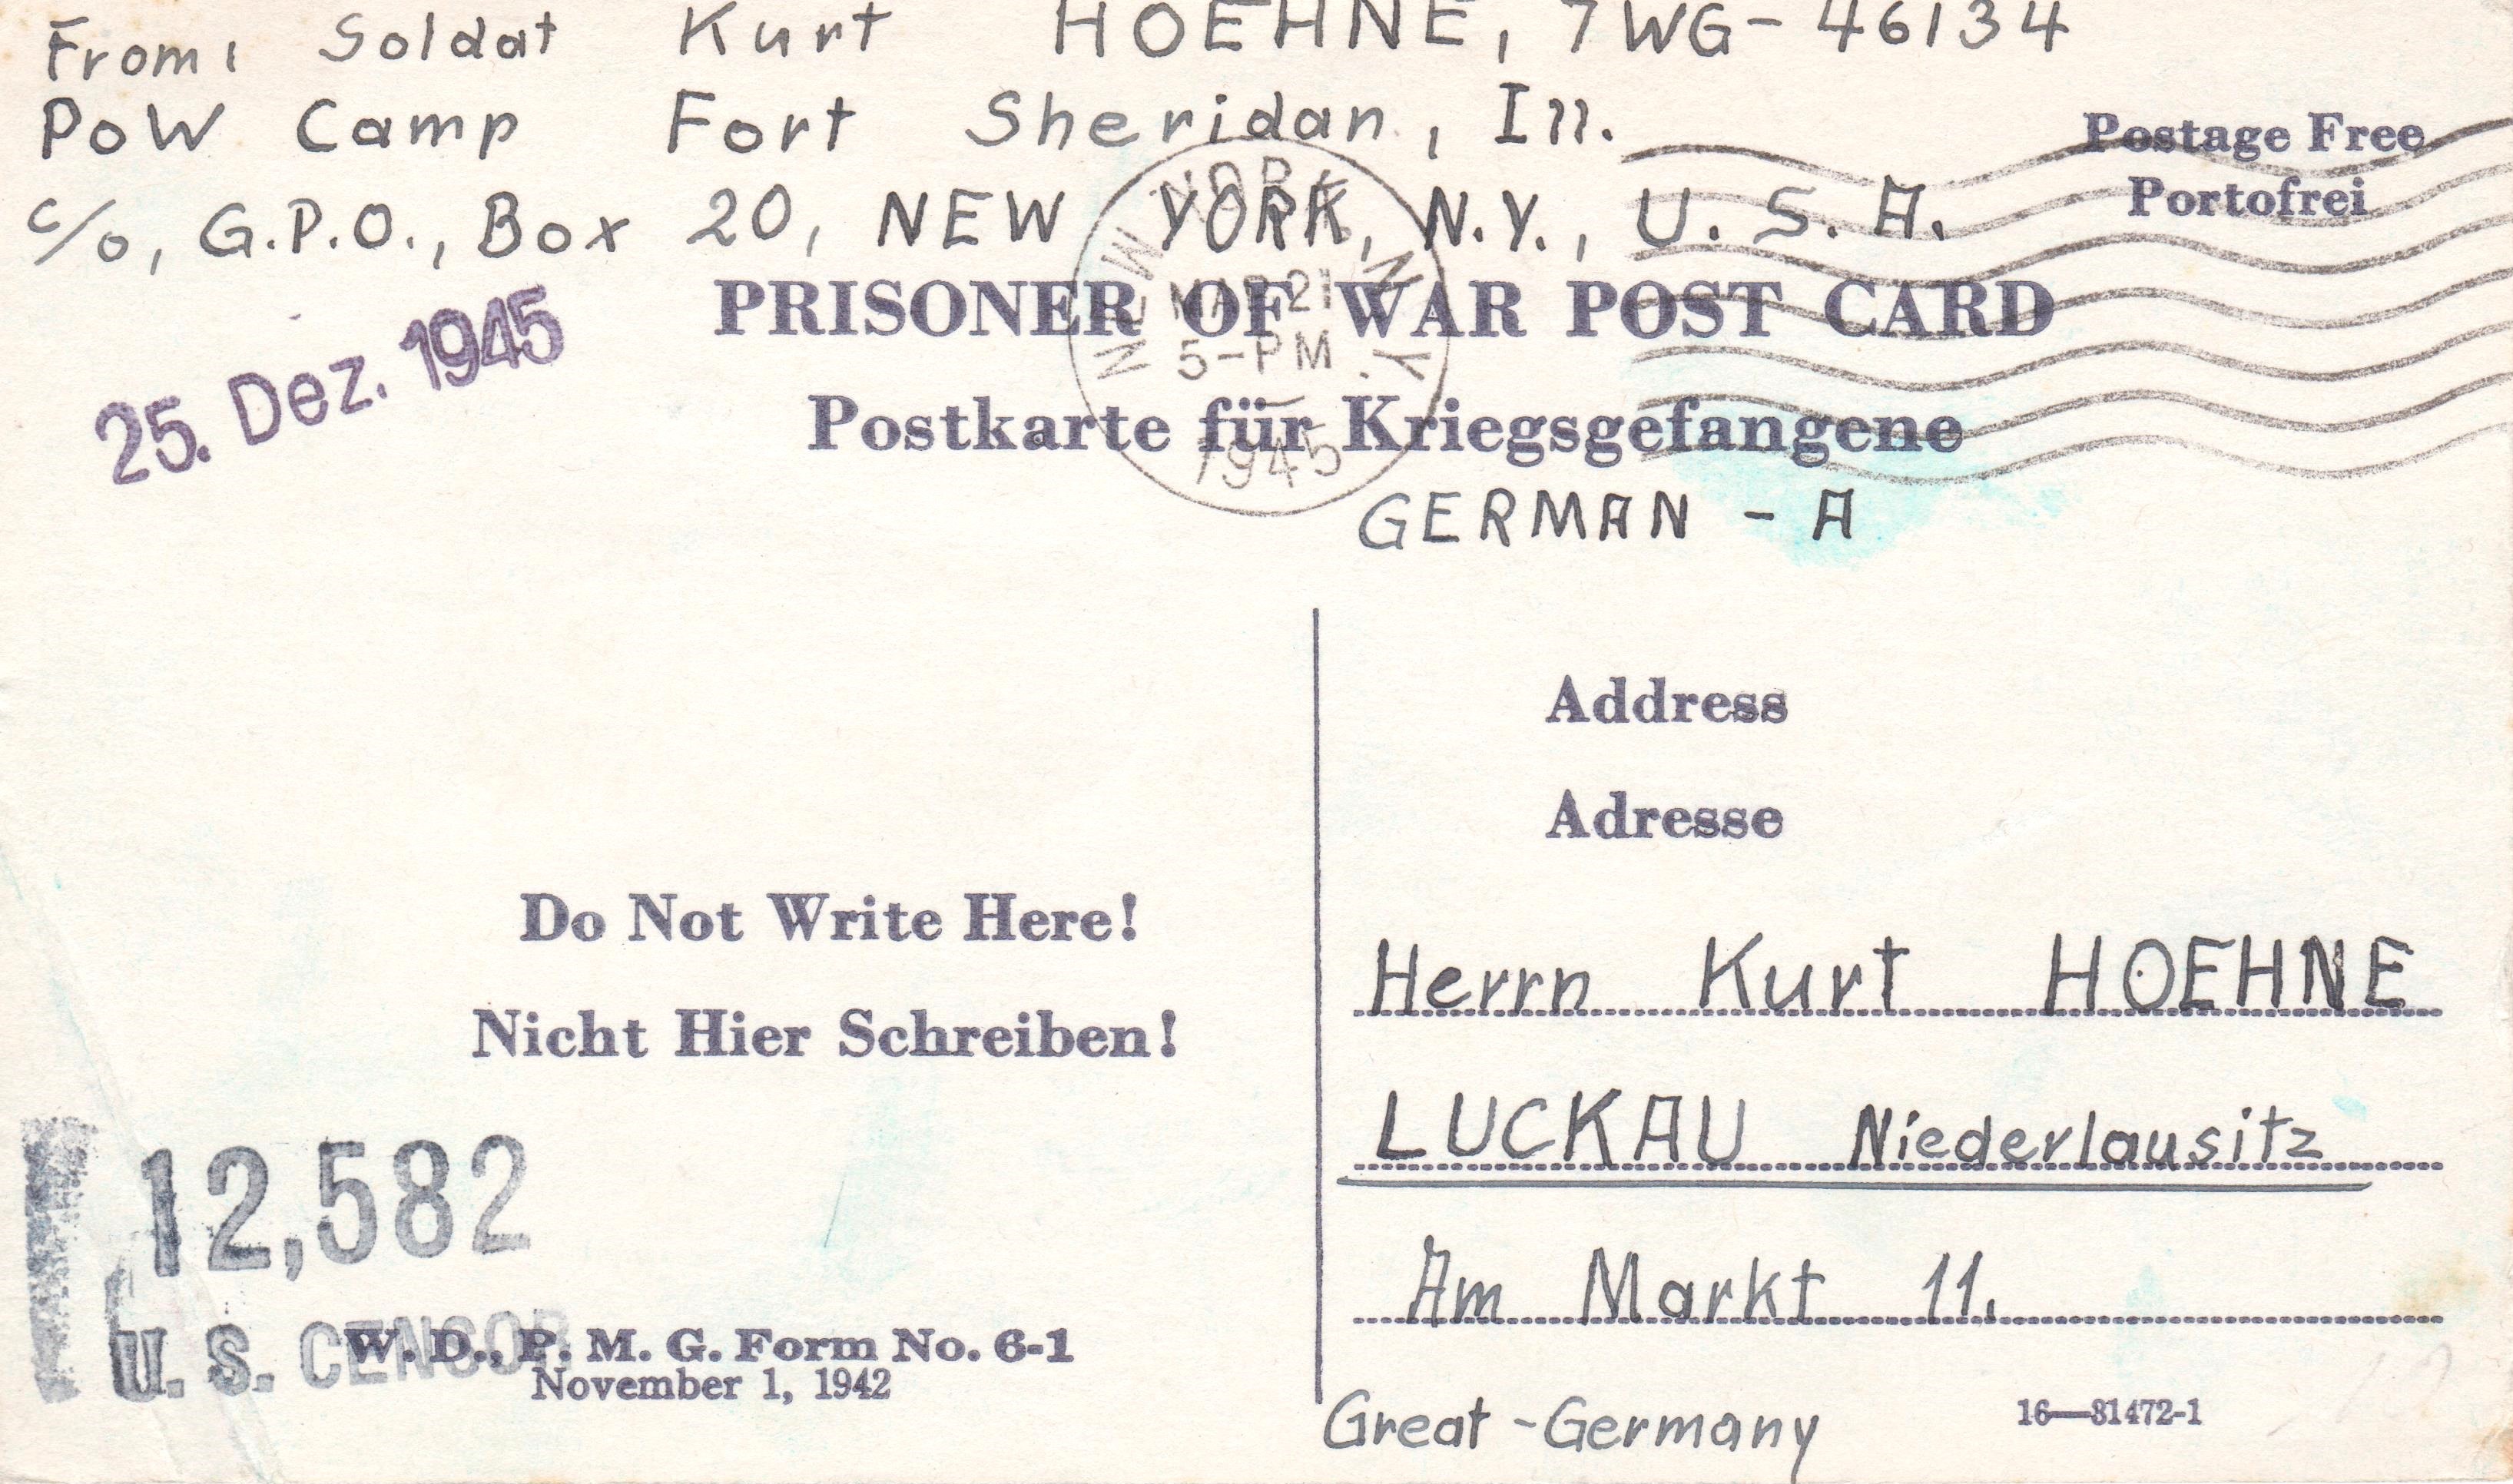 From: Soldat Kurt HOEHNE, 7WG-46134
PoW Camp Fort Sheridan, Ill.
c/o, G.P.O., Box 20, NEW YORK, N.Y., U.S.A.
Postage Free
Portofrei
NEW YORK, N.Y.
MAR 21
5-PM
1945
25. Dez. 1945
PRISONER OF WAR POST CARD
Postkarte für Kriegsgefangene
GERMAN - A
Do Not Write Here!
Nicht Hier Schreiben!
12,582
U.S. CENSOR
W. D., P. M. G. Form No. 6-1
November 1, 1942
Address
Adresse
Herrn Kurt HOEHNE
LUCKAU Niederlausitz
Am Markt 11.
Great-Germany
16—31472-1